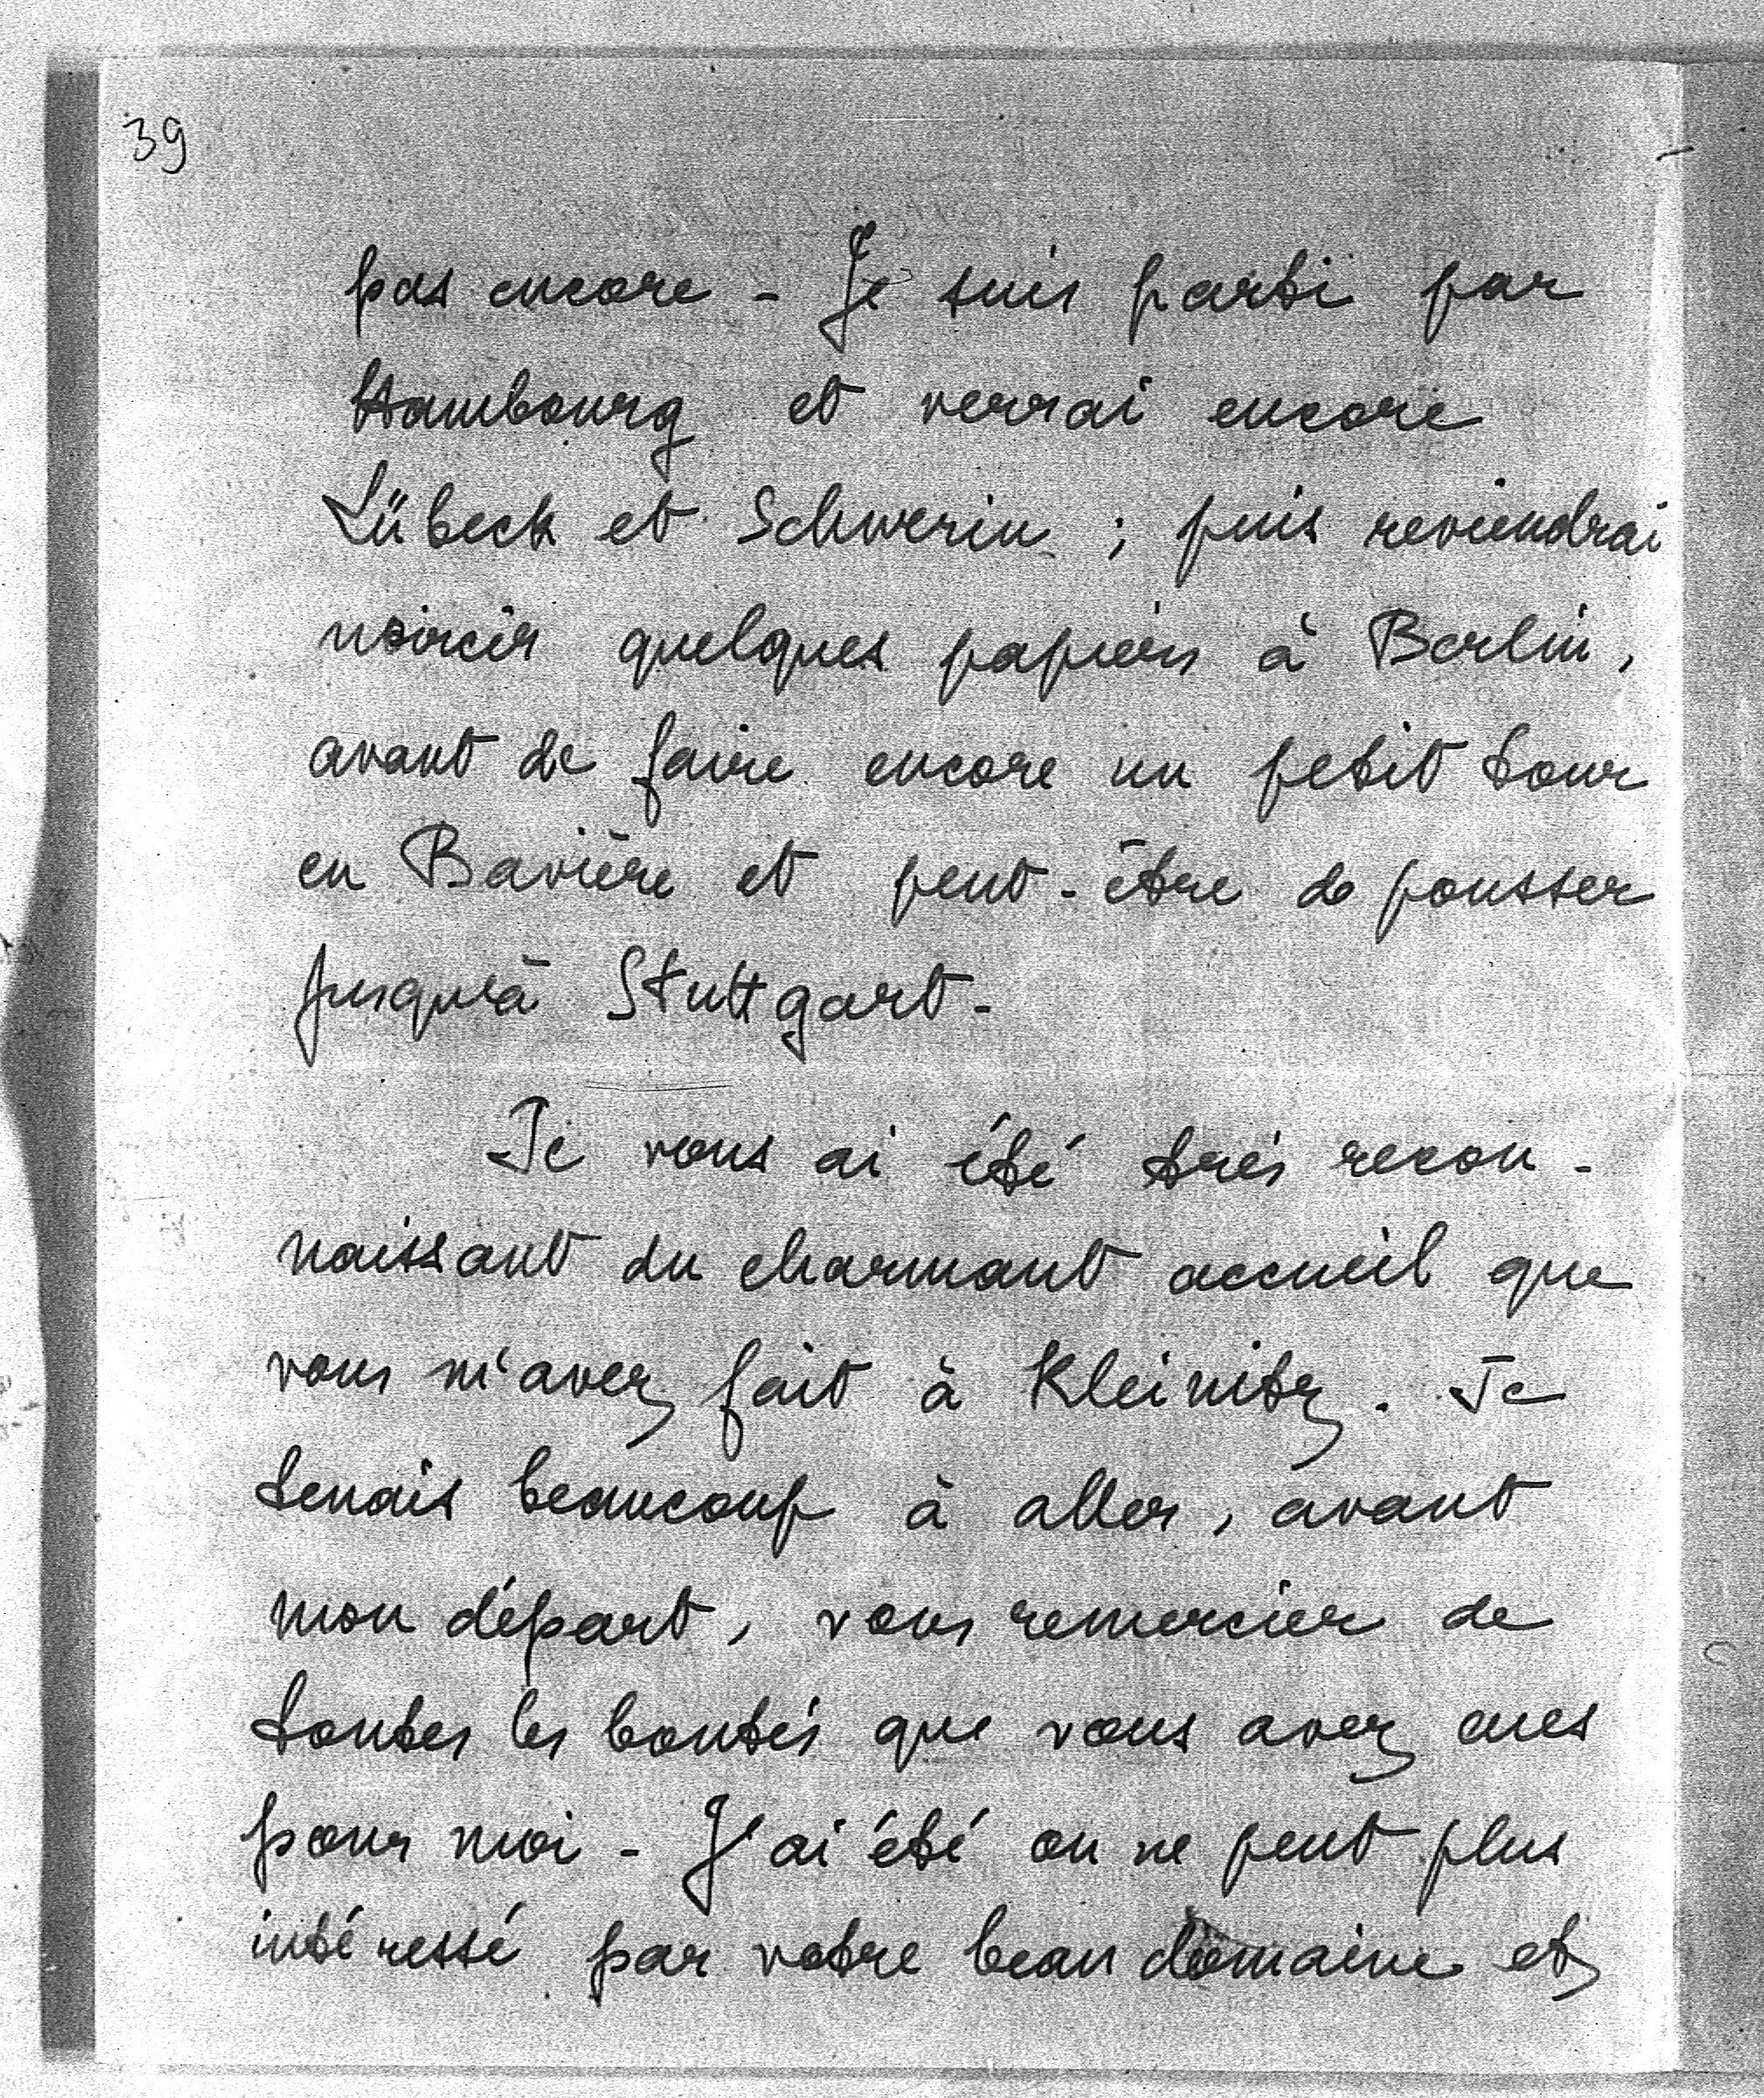 39
pas encore - Je suis parti par
Hambourg et verrai encore
Lübeck et Schwerin ; puis reviendrai
noircir quelques papiers à Berlin,
avant de faire encore un petit tour
en Bavière et peut-être de pousser
jusqu'à Stuttgart -
Je vous ai été très recon-
naissant du charmant accueil que
vous m'avez fait à Kleinitz. Je
tenais beaucoup à aller, avant
mon départ, vous remercier de
toutes les bontés que vous avez eues
pour moi - J'ai été on ne peut plus
intéressé par votre beau domaine et